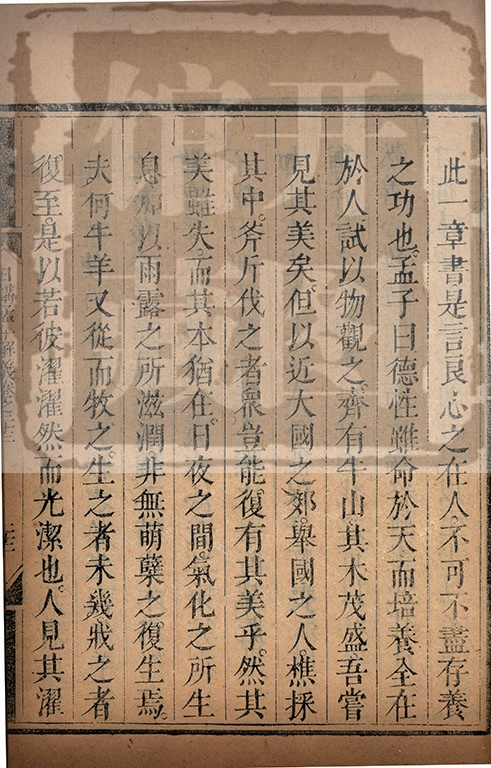 此一章書是言良心之在人不可不盡存養
之功也孟子曰德性雖命於天而培養全在
於人試以物觀之齊有牛山其木茂盛吾嘗
見其美矣但以近大國之郊舉國之人樵採
其中斧斤伐之者衆豈能復有其美乎然其
美雖失而其本猶在日夜之間氣化之所生
息加以雨露之所滋潤非無萌櫱之復生焉
夫何牛羊又從而牧之生之者未幾戕之者
復至是以若彼濯濯然而光潔也人見其濯
日講 解義卷之